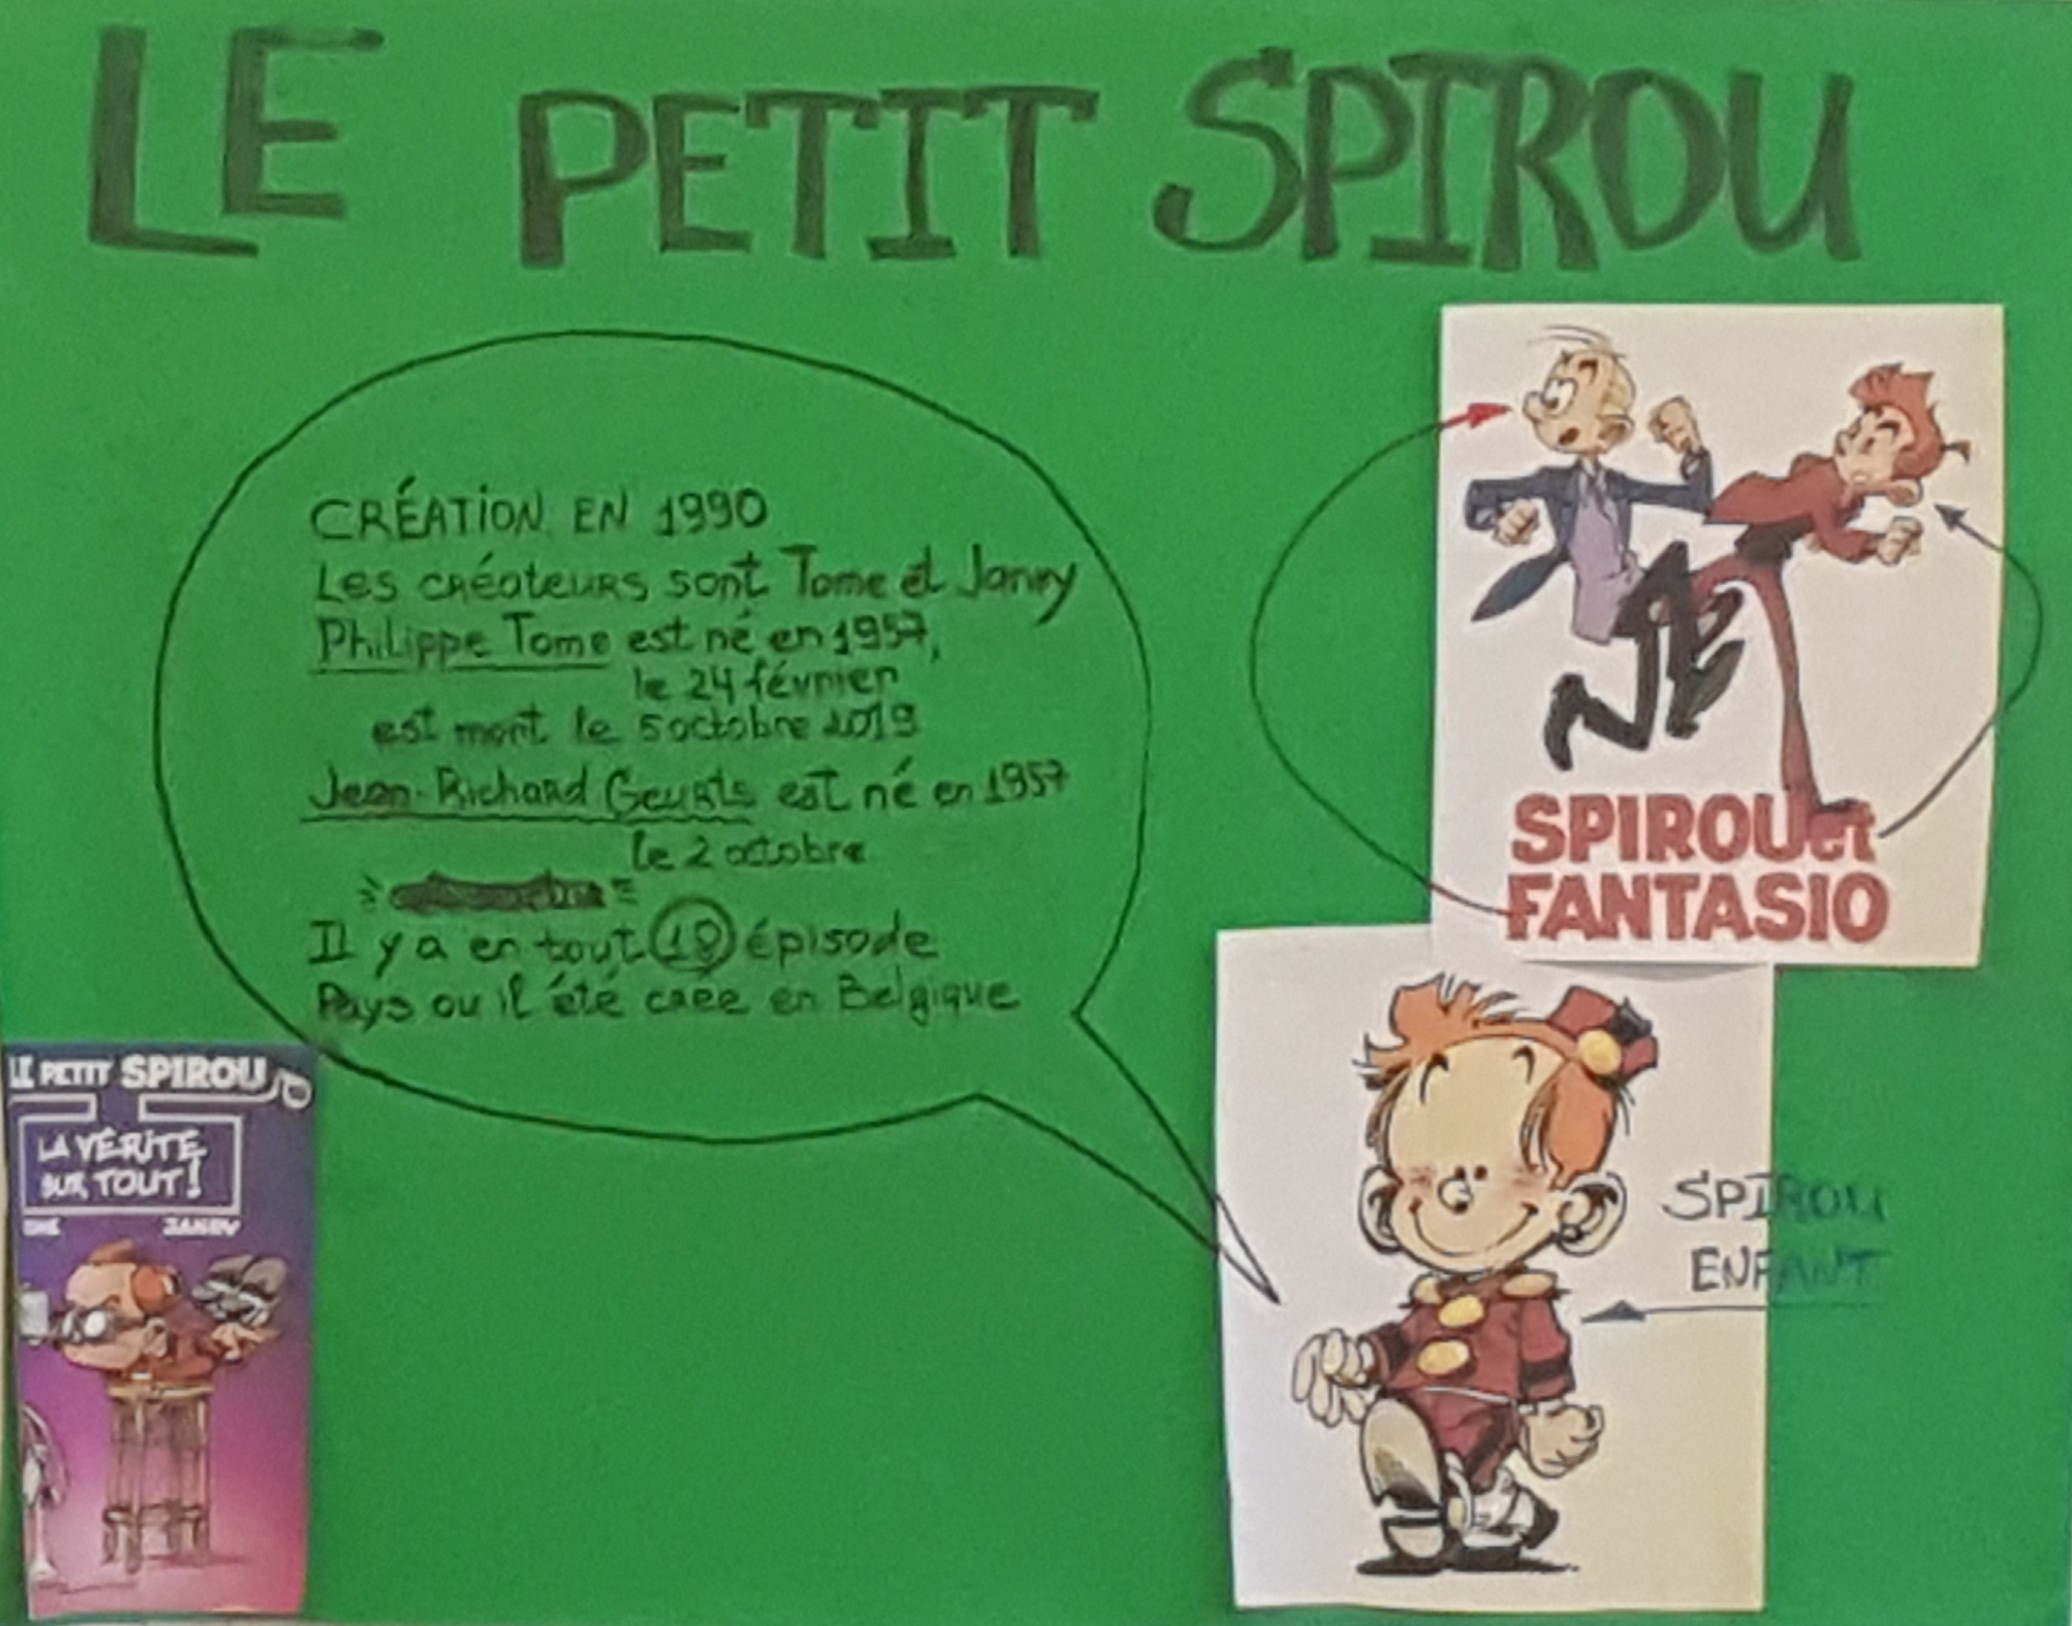 LE PETIT SPIROU
CRÉATION EN 1990
Les créateurs sont Tome et Janry
Philippe Tome est né en 1957,
le 24 février
est mort le 5 octobre 2019
Jean-Richard Geurts est né en 1957
le 2 octobre
Il y a en tout 18 épisode
Pays ou il été créé en Belgique
SPIROU et
FANTASIO
SPIROU
ENFANT
LE PETIT SPIROU
LA VÉRITÉ
SUR TOUT!
OME JANRY